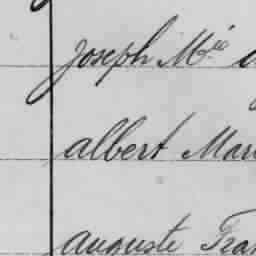 Joseph M.ie
albert Mari
auguste Fran